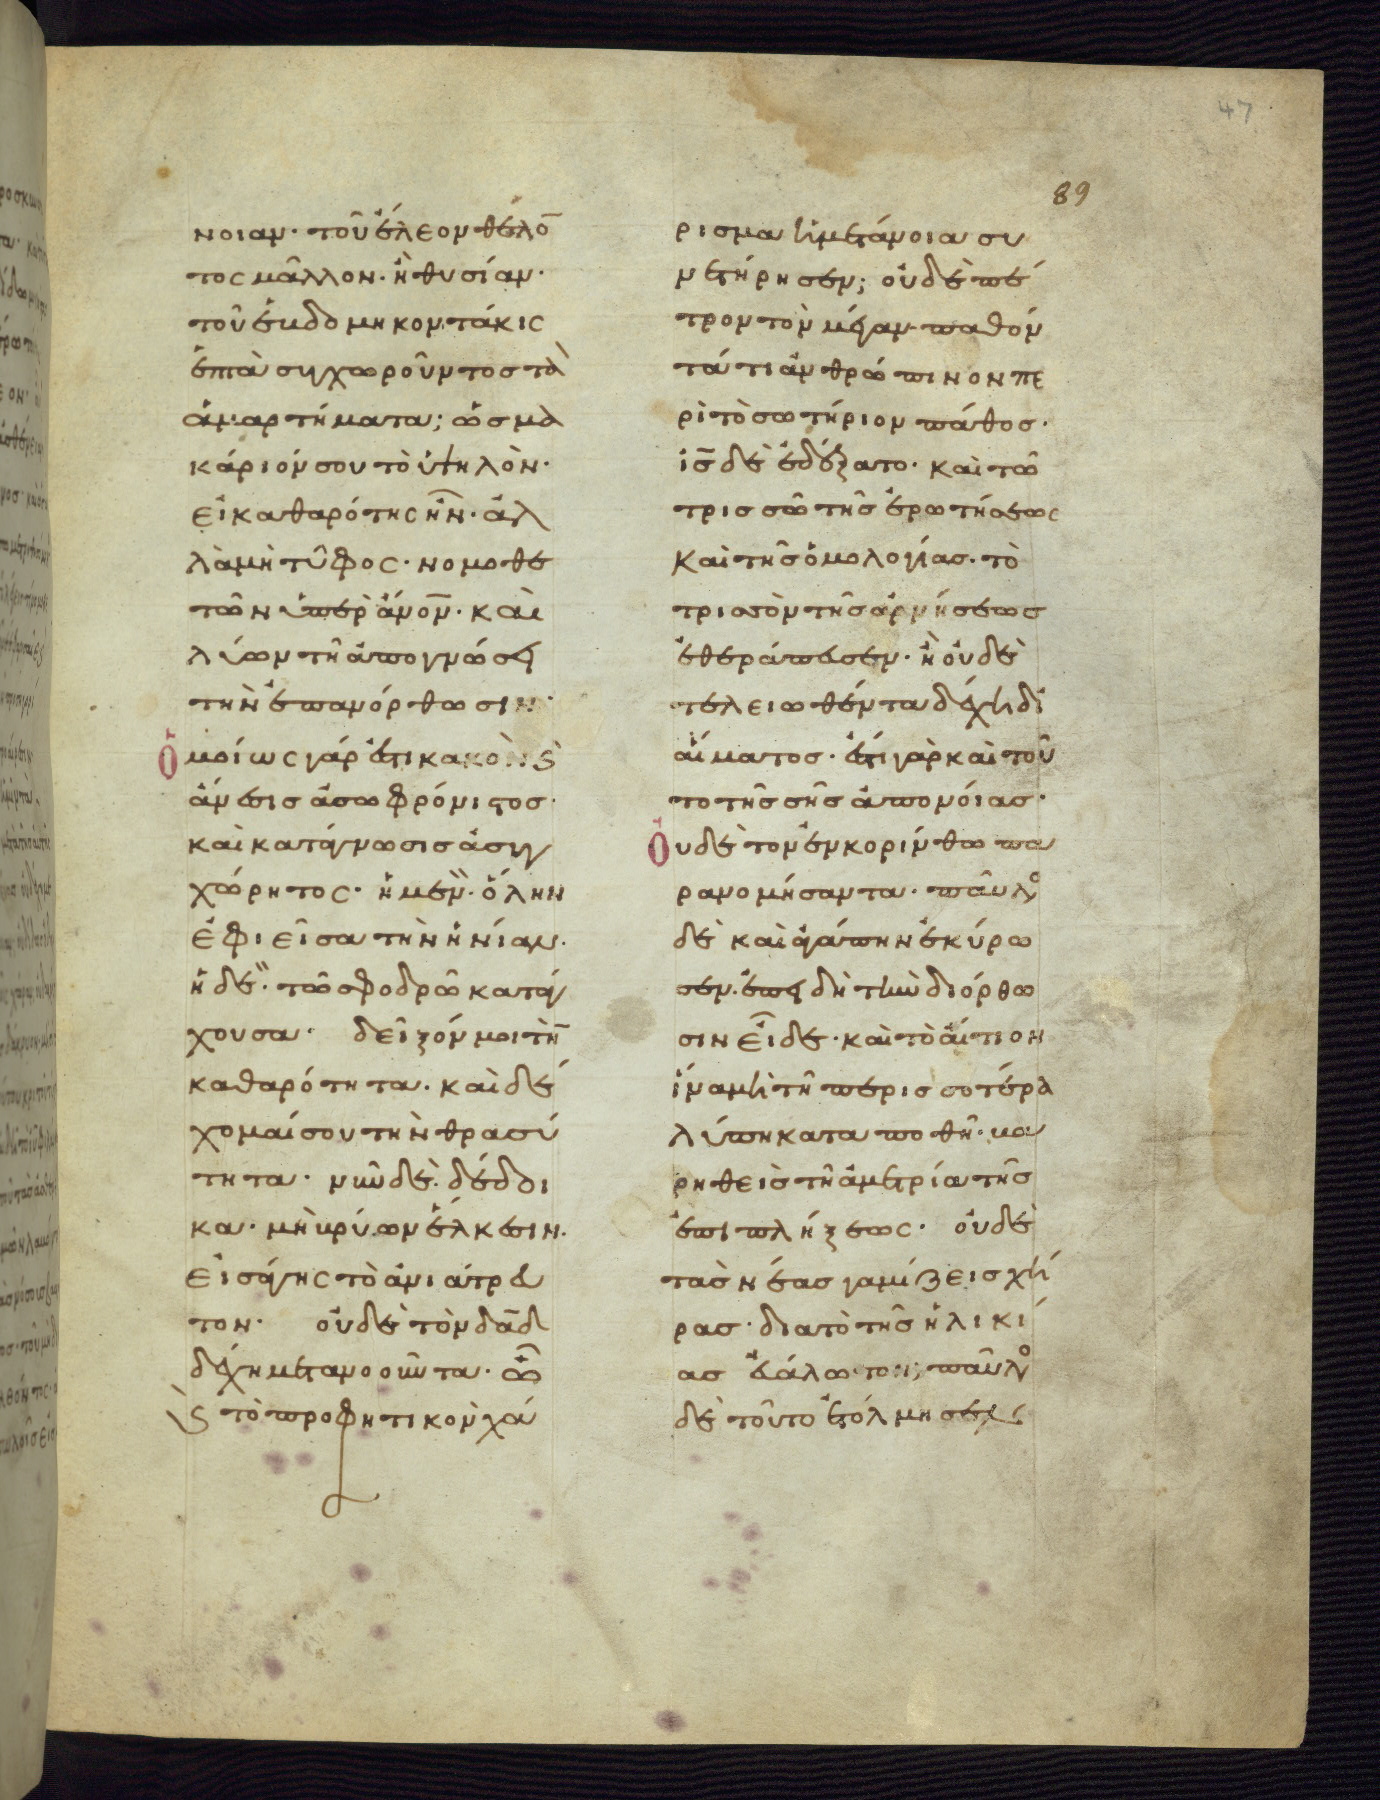 47
89
νοιαν· τοῦ ἔλεον θέλο̅
τος μᾶλλον· ἢ θυσίαν·
τοῦ ἑβδομηκοντάκις
ἑπτὰ συγχωροῦντος τὰ
ἁμαρτήματα; ὡς μα
κάριόν σου τὸ ὑψηλὸν·
εἰ καθαρότης ἦν· ἀλ
λὰ μὴ τῦφος· νομοθε
τῶν ὑπὲρ ἄνο̅ν· καὶ
λύων τῆ ἀπογνώσει
τὴν ἐπανόρθωσιν·
Ὁμοίως γάρ ἐστι κακὸν ϗ
ἄνεσις ἀσωφρόνιστος·
καὶ κατάγνωσις ἀσυγ
χώρητος· ἡ μὲν· ὅλην
ἐφιεῖσα τὴν ἡνίαν·
ἡ δὲ· τῶ σφοδρῶ κατάγ
χουσα· δεῖξόν μοι τὴ̅
καθαρότητα· καὶ δέ
χομαί σου τὴν θρασύ
τητα· νῦν δὲ· δέδοι
κα· μὴ βρύων ἕλκεσιν·
εἰσάγης τὸ ἀνιάτρευ
τον· οὐδὲ τὸν δα̅δ
δέχη μετανοοῦντα· ὧ
ϗ τὸ προφητικὸν χά
ρισμα ἡ μετάνοια συ
νετήρησεν; οὐδὲ πέ
τρον τὸν μέγαν· παθόν
τά τι ἀνθρώπινον πε
ρὶ τὸ σωτήριον πάθος·
ι̅ς̅ δὲ ἐδέξατο· καὶ τῶ
τρισσῶ τῆς ἐρωτήσεως
καὶ τῆς ὁμολογίας· τὸ
τρισσὸν τῆς ἀρνήσεως
ἐθεράπευσεν· ἢ οὐδὲ
τελειωθέντα δέχη δι'
αἵματος· ἔτι γὰρ καὶ τοῦ
το τῆς σῆς ἀπονοίας·
Οὐδὲ τὸν ἐν κορίνθω πα
ρανομήσαντα· παῦλο
δὲ καὶ ἀγάπην ἐκύρω
σεν· ἐπειδὴ τὴν διόρθω
σιν εἶδε· καὶ τὸ αἴτιον
ἵνα μὴ τῆ περισσοτέρα
λύπη καταποθῆ· βα
ρηθεὶς τῆ ἀμετρία τῆς
ἐπιπλήξεως· οὐδὲ
τὰς νέας γαμίζεις χή
ρας· διὰ τὸ τῆς ἡλικί
ας εὐάλωτον; παῦλο
δὲ τοῦτο ἐτόλμησεν